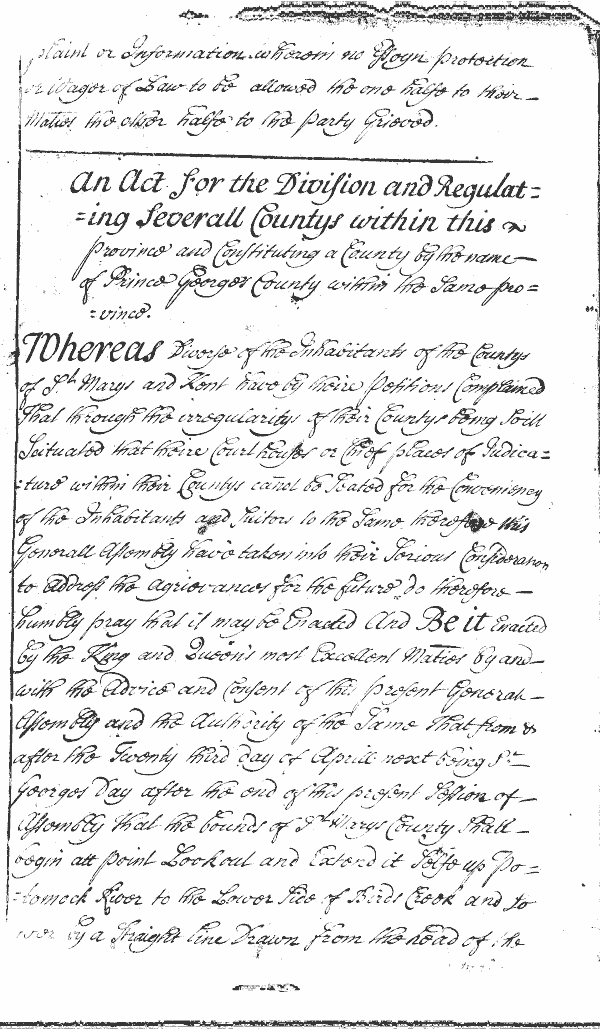 plaint or Information wherein no Essoyn protection
or Wager of Law to be allowed the one halfe to their
Maties the other halfe to the Party Grieved.
An Act for the Division and Regulat=
=ing Severall Countys within this
Province and Constituting a County by the name
of Prince Georges County within the Same pro=
=vince.
Whereas Diverse of the Inhabitants of the Countys
of St. Marys and Kent have by theire Petitions Complained
That through the irregularitys of their Countys being Soill
Scituated that theire Court houses or Chief places of Judica=
=ture within their Countys canot be Seated for the Conveniency
of the Inhabitants and Suitors to the Same therefore this
Generall Assembly have taken into their Serious Consideration
to Address the Agrievances for the future do therefore
humbly pray that it may be Enacted And Be it Enacted
by the King and Queen's most Excellent Maties by and
with the Advice and Consent of this present Generall
Assembly and the Authority of the Same That from &
after the Twenty third day of Aprill next being St.
Georges Day after the end of this present Session of
Assembly that the bounds of St. Marys County Shall
begin att point Lookout and Extend it Selfe up Po=
=tomock River to the Lower Side of Birds Creek and So
over by a Straight line Drawn from the head of the